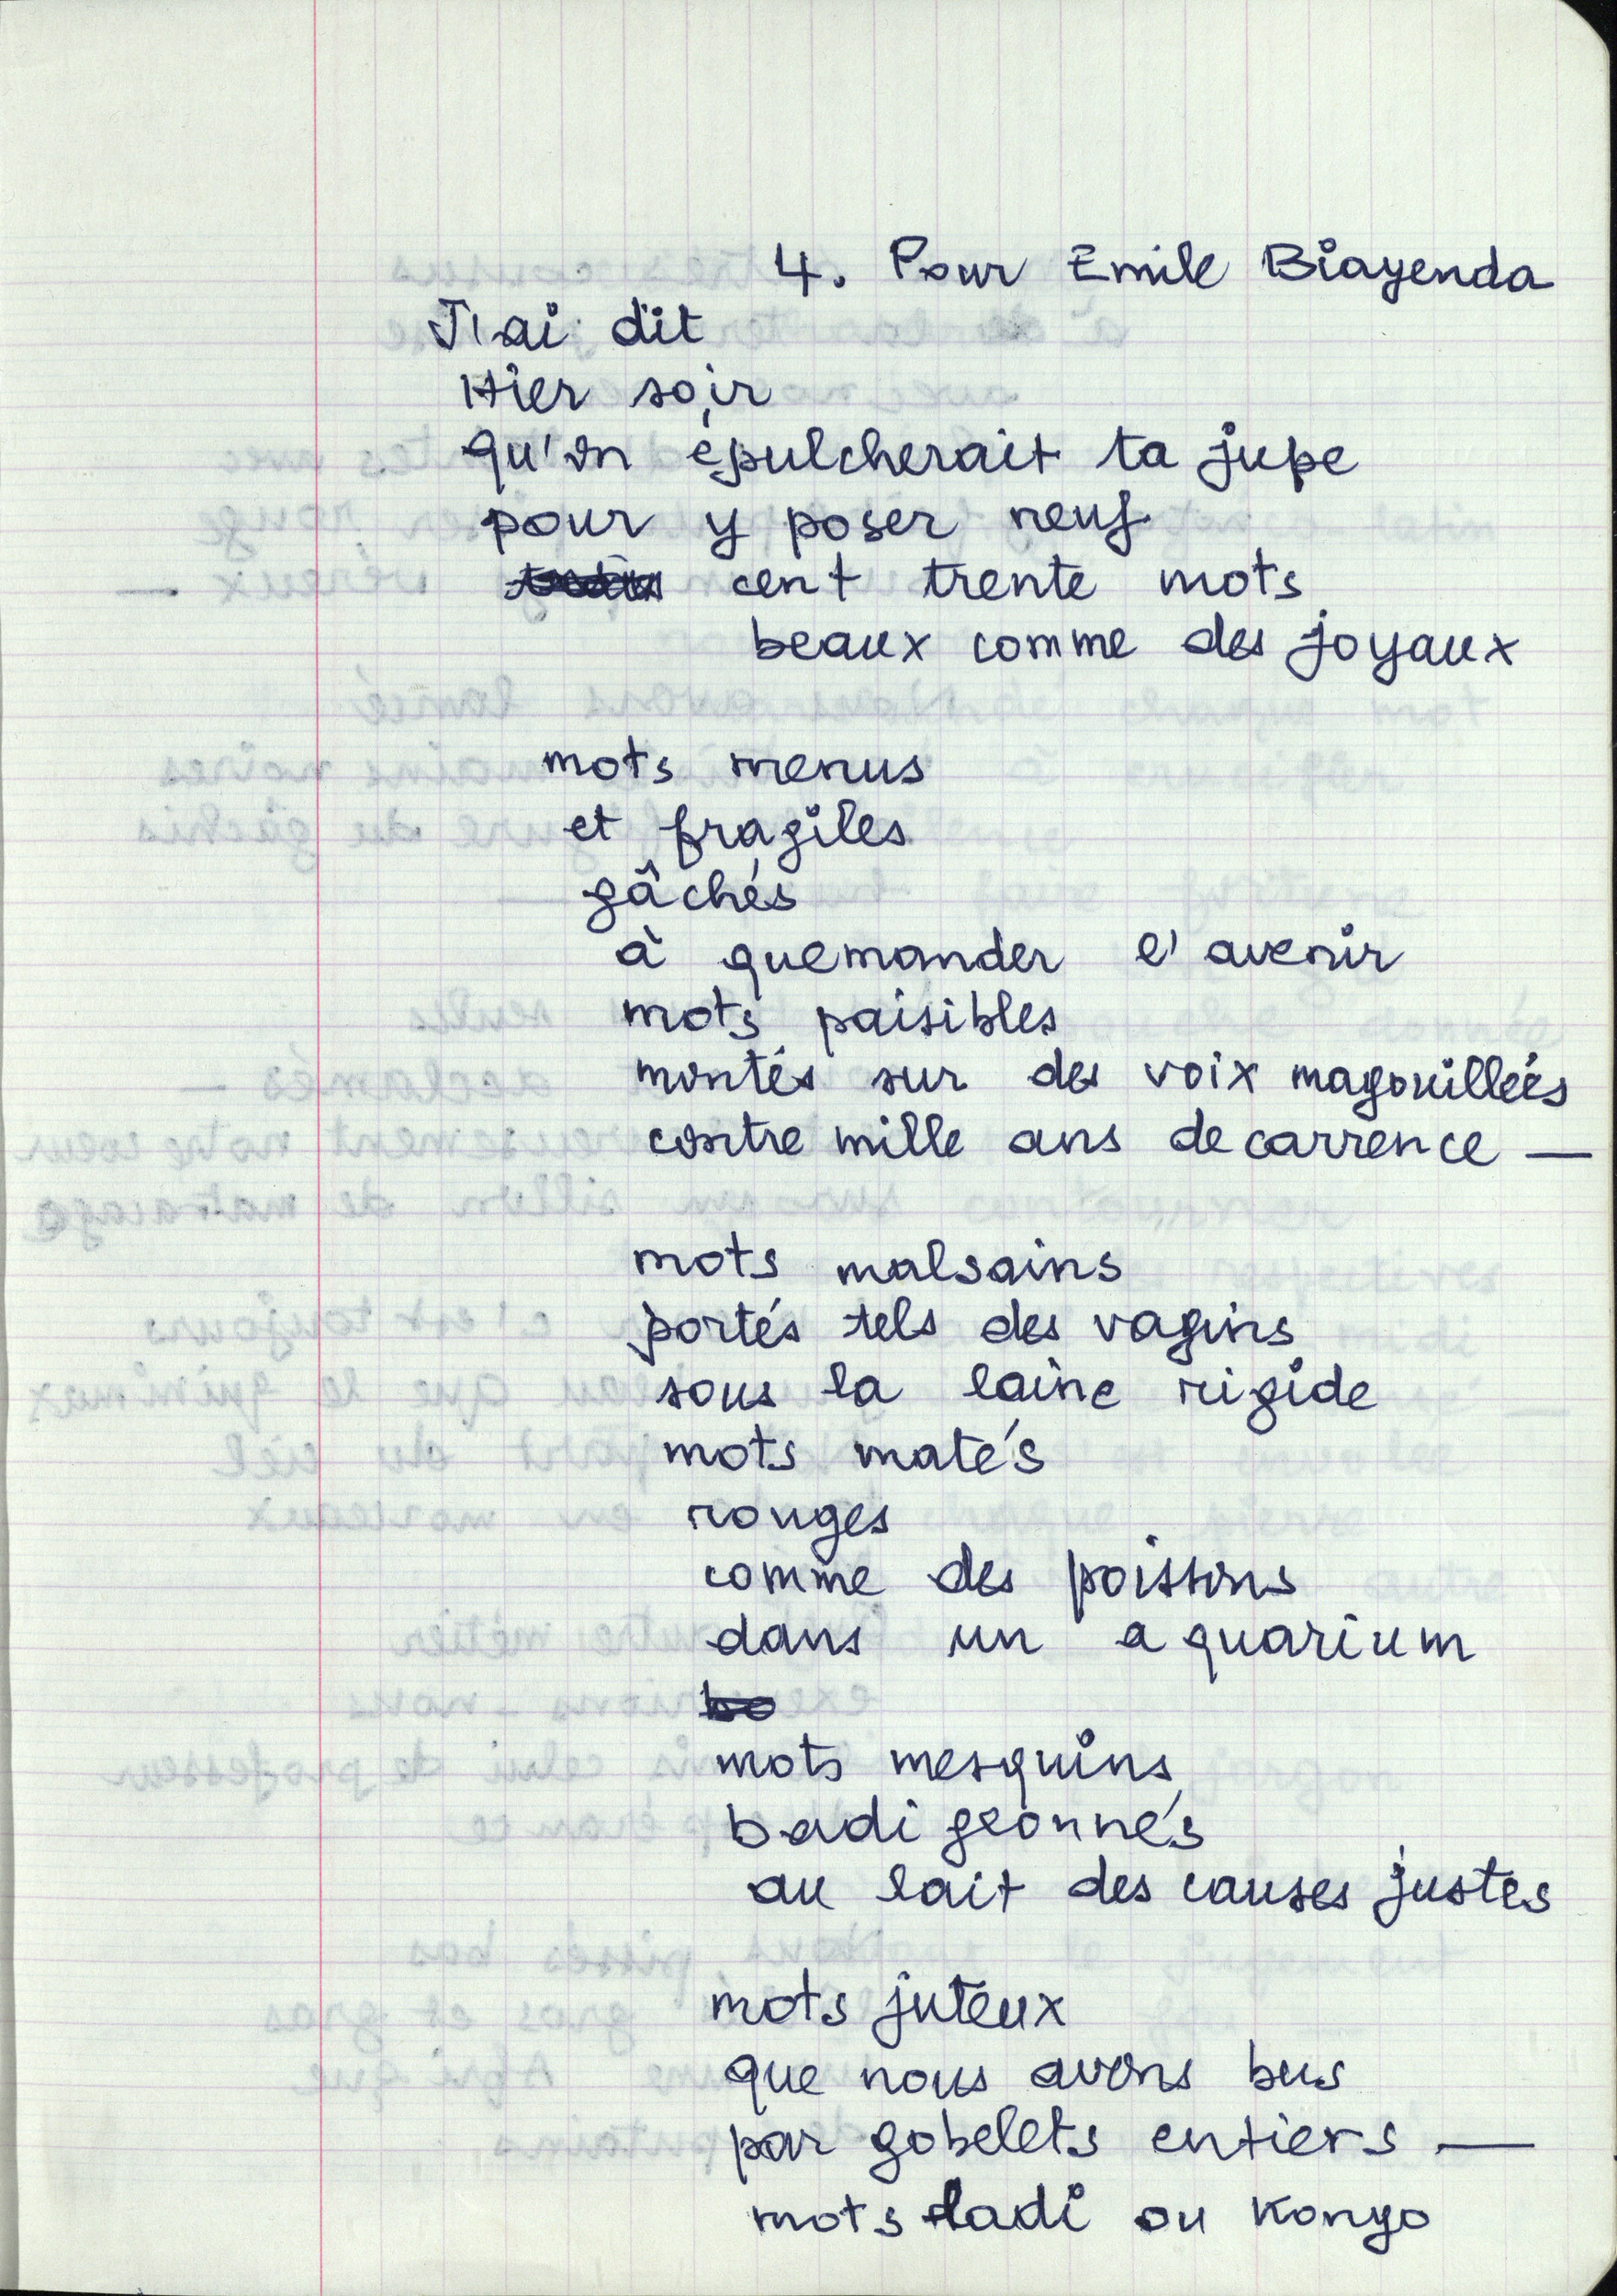 4. Pour Emile Biayenda
J'ai dit
Hier soir
qu'on épulcherait ta jupe
pour y poser neuf
cent trente mots
beaux comme des joyaux
mots menus
et fragiles
gâchés
à quemander l'avenir
mots paisibles
montés sur des voix magouillées
contre mille ans de carrence —
mots malsains
portés tels des vagins
sous la laine rigide
mots matés
rouges
comme des poissons
dans un aquarium
bo
mots mesquins
badigeonnés
au lait des causes justes
mots juteux
que nous avons bus
par gobelets entiers —
mots ladi ou Kongo